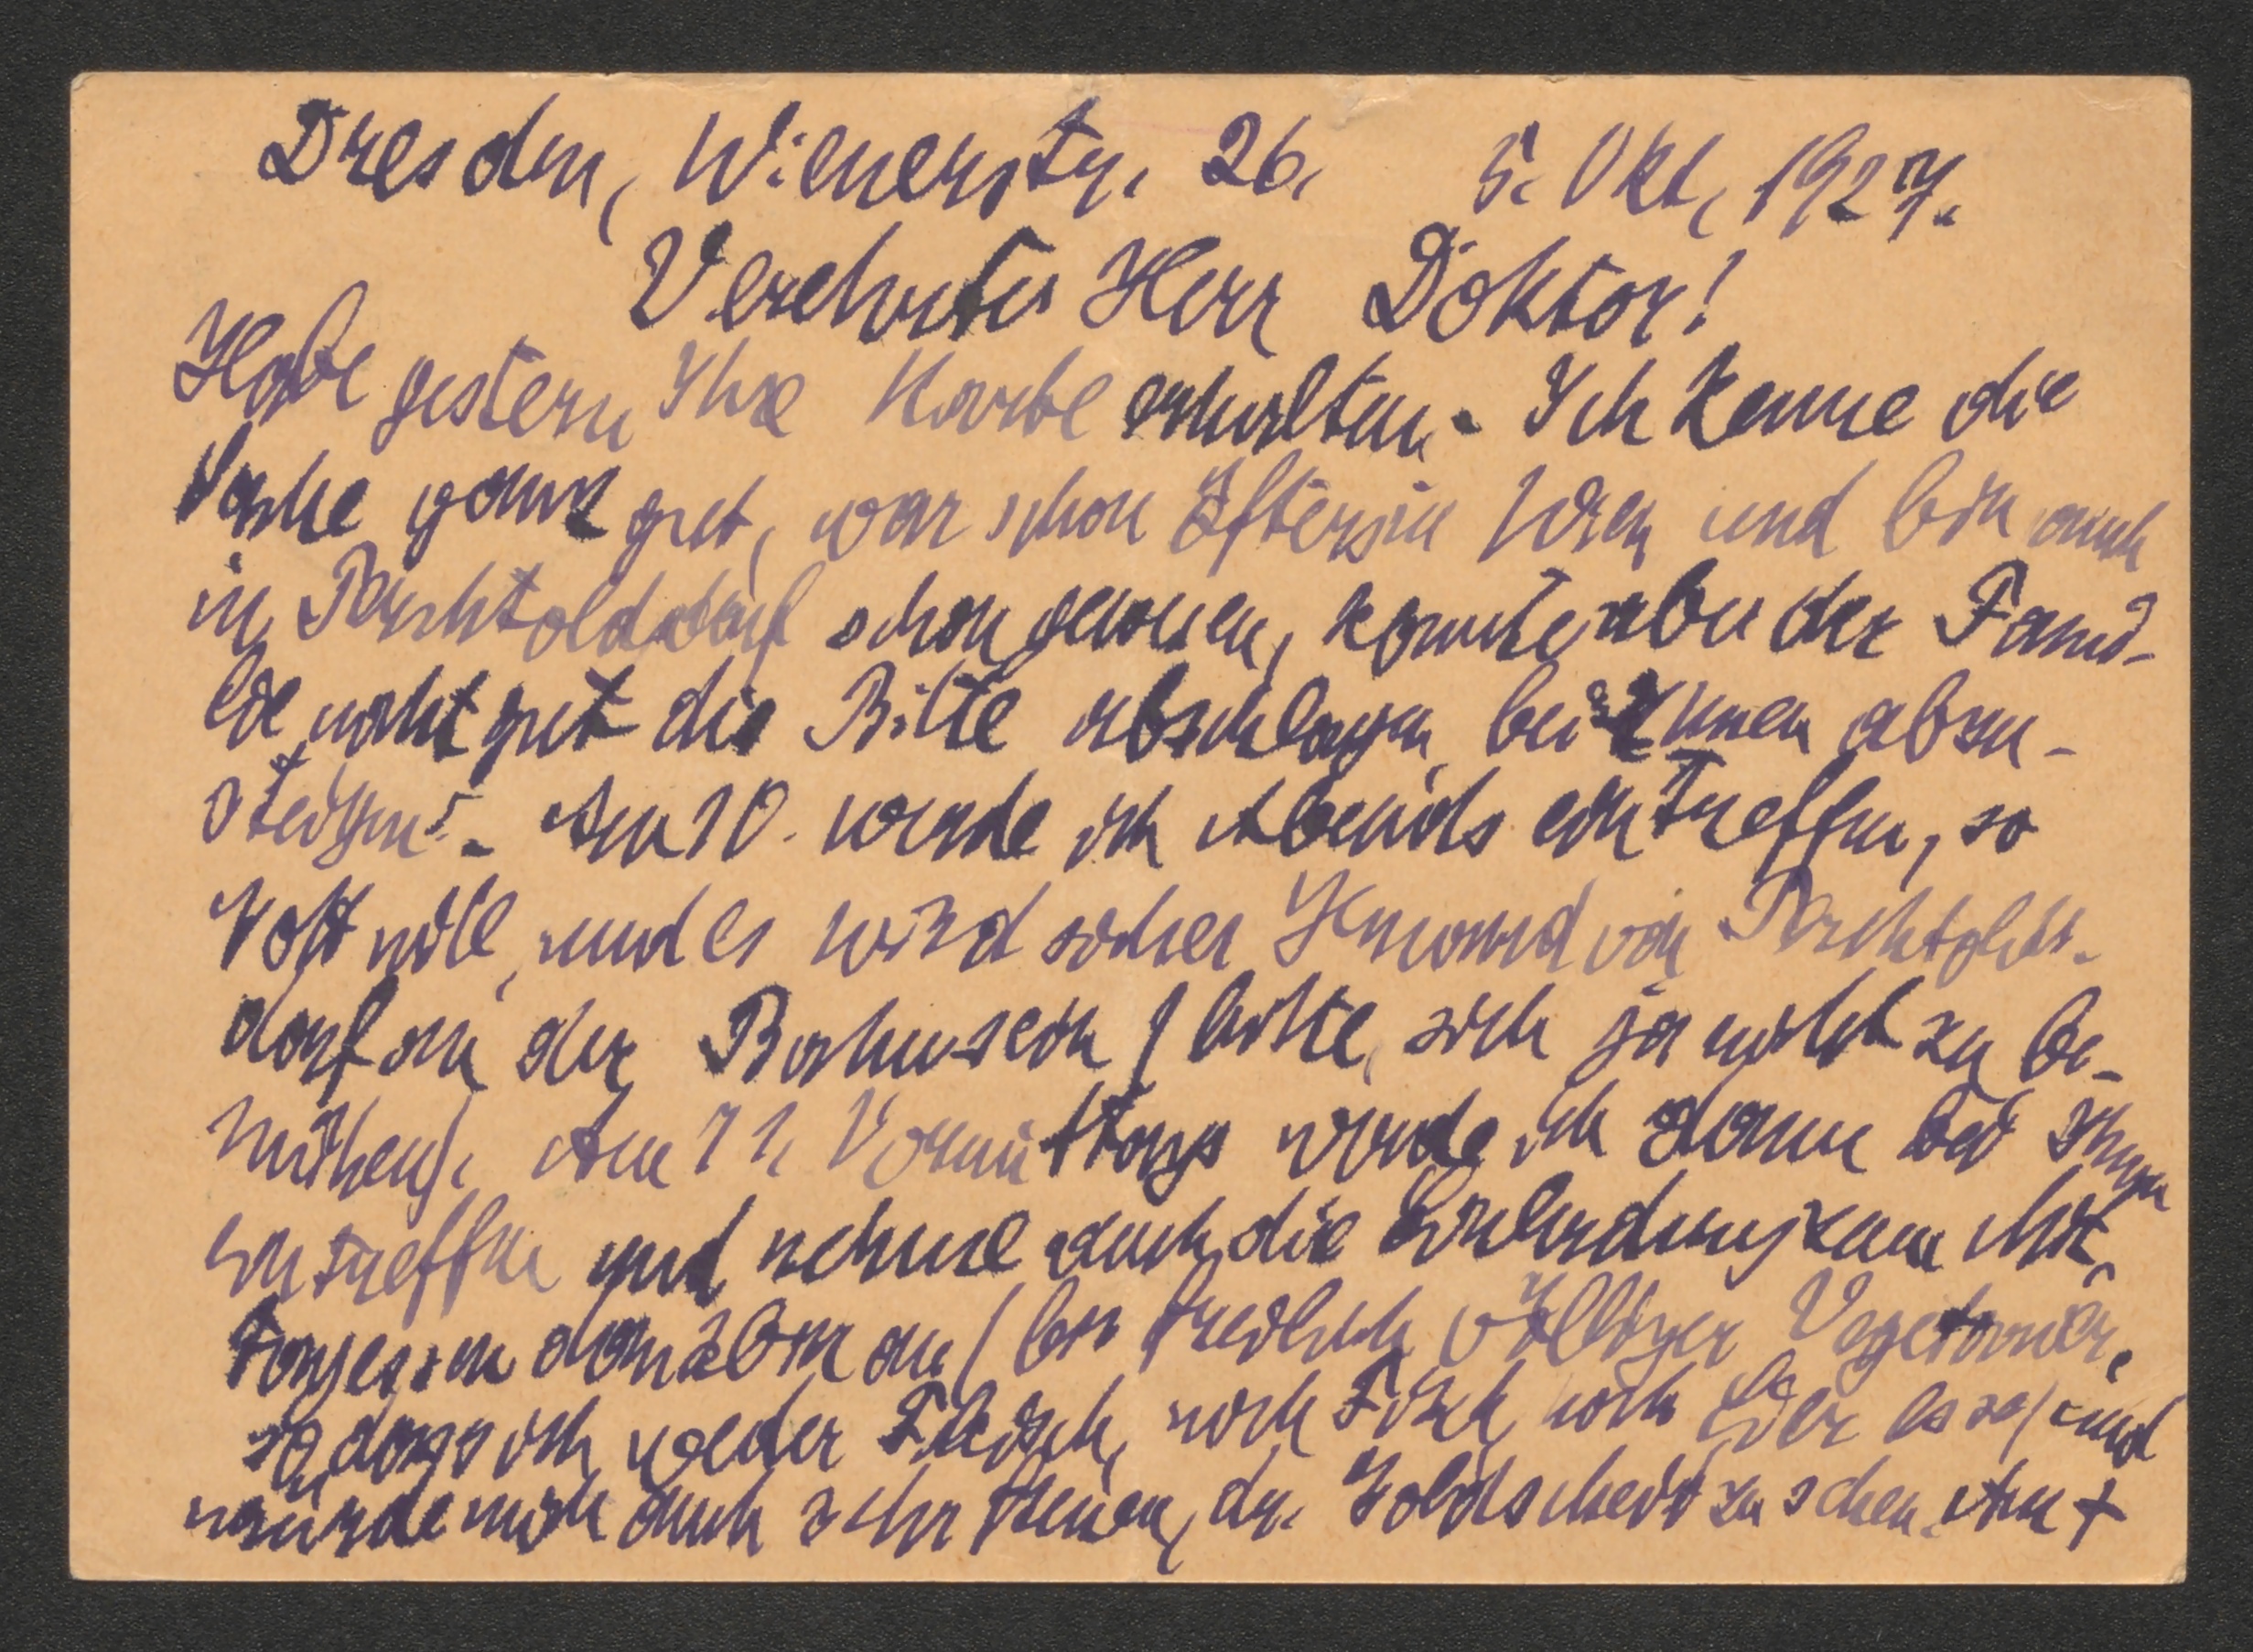 Dresden, Wienerstr. 26. 5. Okt, 1927.
Verehrter Herr Doktor!
Habe gestern Ihre Karte erhalten. Ich kenne die
Sache ganz gut, war schon öfters in Wien und bin auch
in Perchtoldsdorf schon gewesen, konnte aber der Fami-
lie nicht gut die Bitte abschlagen, bei ihnen abzu-
steigen. - Am 10. werde ich Abends eintreffen, so
Gott will, und es wird sicher Jemand von Perchtolds-
dorf an der Bahn sein (bitte, sich ja nicht zu be-
mühen). Am 11. Vormittags werde ich dann bei Ihnen
eintreffen und nehme auch die Einladung zum Mit-
tagessen dankbar an (bin freilich völliger Vegetarier,
so dass ich weder Fleisch, noch Fisch, noch Eier esse) und
würde mich auch sehr freuen, dr. Goldscheid zu sehen. Am +